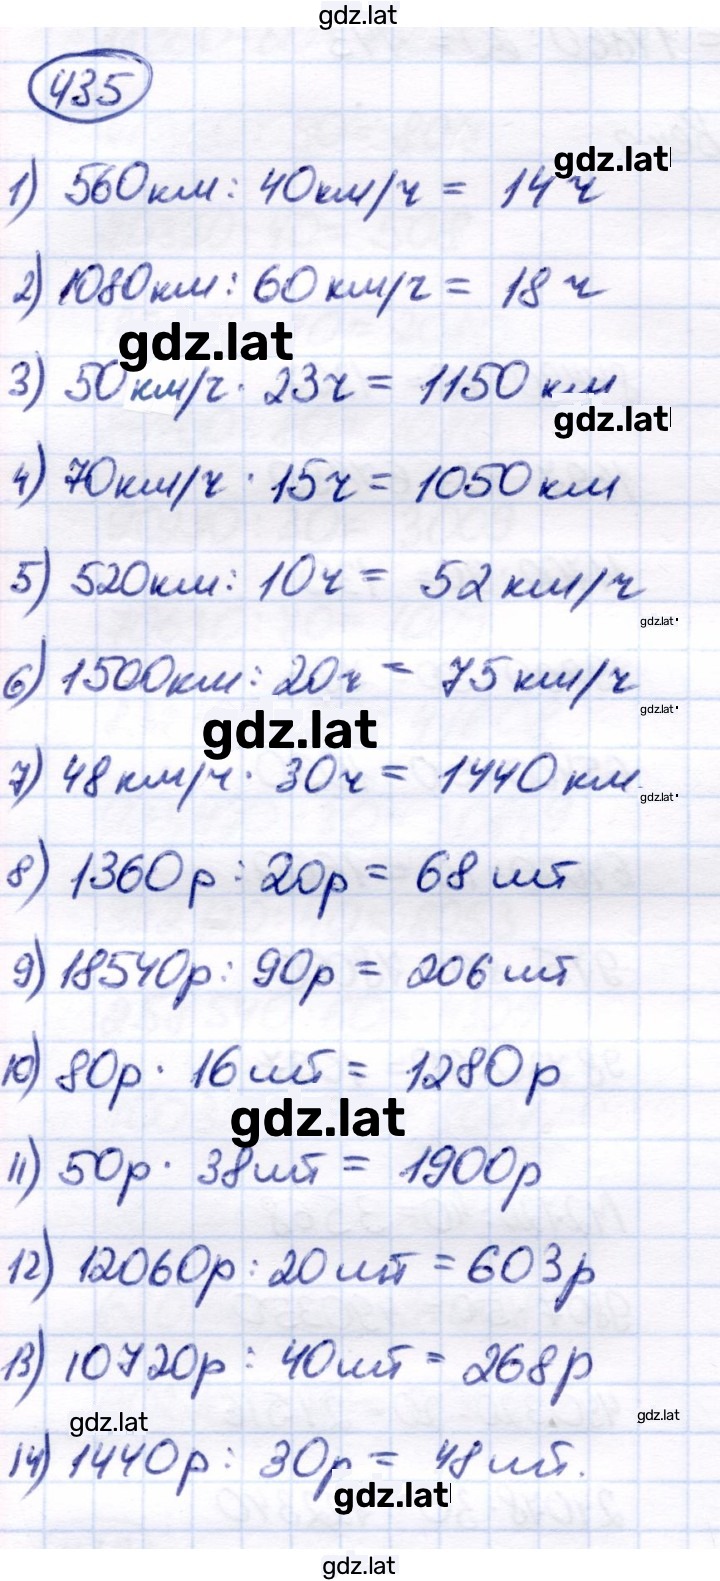 gdz.lat
435
gdz.lat
1) 560км : 40км/ч = 14 ч
2) 1080км : 60 км/ч = 18 ч
gdz.lat
3) 50км/ч · 23ч = 1150 км
gdz.lat
4) 70км/ч · 15ч = 1050 км
5) 520км : 10ч = 52 км/ч
gdz.lat
6) 1500км : 20ч = 75 км/ч
gdz.lat
gdz.lat
7) 48 км/ч · 30ч = 1440 км
gdz.lat
8) 1360р : 20р = 68 шт
9) 18540р : 90р = 206 шт
10) 80р · 16 шт = 1280р
gdz.lat
11) 50р · 38шт = 1900р
12) 12060р : 20 шт = 603р
13) 10720р : 40шт = 268р
gdz.lat
gdz.lat
14) 1440р : 30р = 48 шт.
gdz.lat
gdz.lat